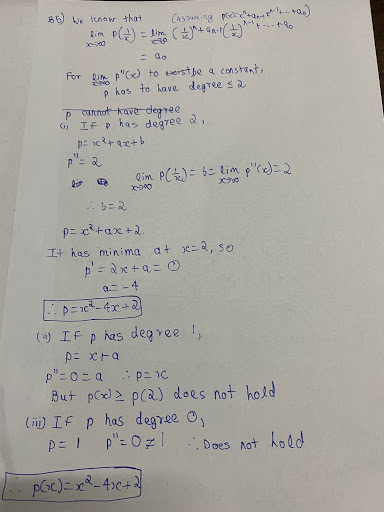 85) We know that (Assuming p(x)=xⁿ+aₙ₋₁xⁿ⁻¹+...+a₀)
lim x→∞ P(1/x) = lim x→∞ (1/x)ⁿ+aₙ₋₁(1/x)ⁿ⁻¹+...+a₀
= a₀
For lim x→∞ p''(x) to exist be a constant,
p has to have degree ≤ 2
p cannot have degree
(i) If p has degree 2,
p=x²+ax+b
p''=2
lim x→∞ P(1/x)=b=lim x→∞ p''(x)=2
∴ b=2
p=x²+ax+2.
It has minima at x=2, so
p'=2x+a=0
a=-4
∴ p=x²-4x+2
(ii) If p has degree 1,
p= x+a
p''=0=a ∴ p=x
But p(x)≥ p(2) does not hold
(iii) If p has degree 0,
p=1 p''=0≠1 ∴ Does not hold
∴ p(x)=x²-4x+2